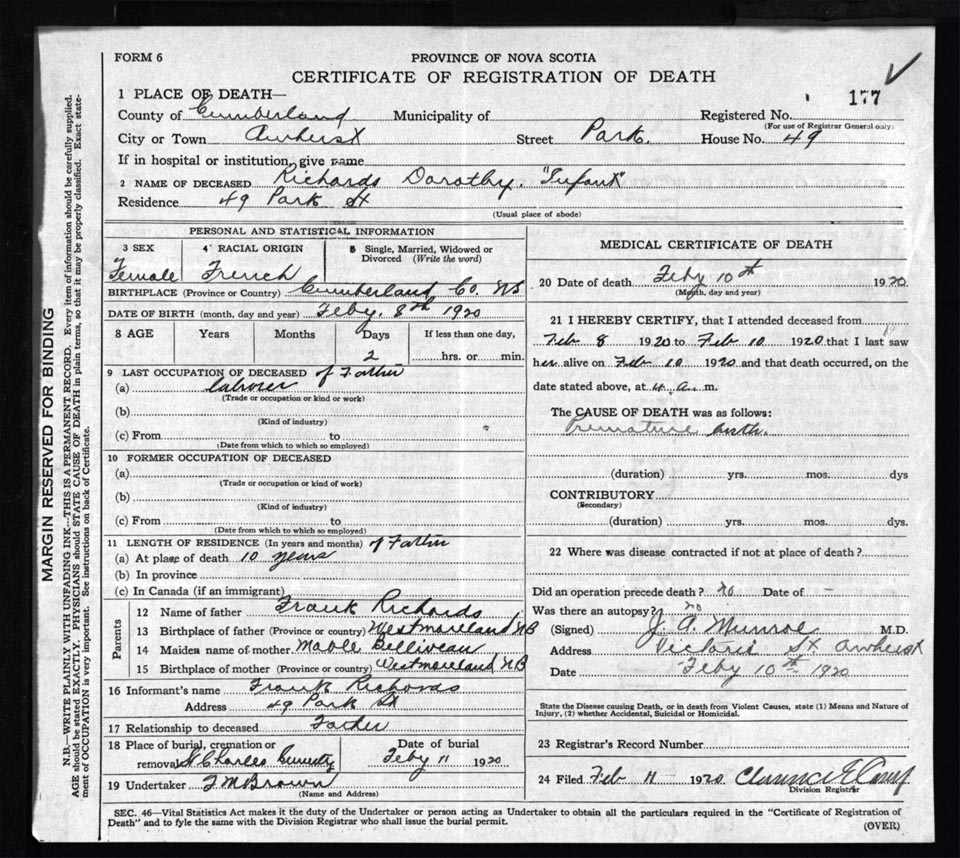 FORM 6
PROVINCE OF NOVA SCOTIA
CERTIFICATE OF REGISTRATION OF DEATH
177
1 PLACE OF DEATH—
County of Cumberland Municipality of Registered No.
(For use of Registrar General only)
City or Town Amherst Street Park. House No. 49
If in hospital or institution, give name
2 NAME OF DECEASED Richards Dorothy. "Infant"
Residence 49 Park St
(Usual place of abode)
PERSONAL AND STATISTICAL INFORMATION
3 SEX 4 RACIAL ORIGIN 5 Single, Married, Widowed or Divorced (Write the word)
Female French
BIRTHPLACE (Province or Country) Cumberland Co. NS
DATE OF BIRTH (month, day and year) Feby. 8th 1920
8 AGE Years Months Days If less than one day,
2 hrs. or min.
9 LAST OCCUPATION OF DECEASED of Father
(a) laborer
(Trade or occupation or kind of work)
(b)
(Kind of industry)
(c) From to
(Date from which to which so employed)
10 FORMER OCCUPATION OF DECEASED
(a)
(Trade or occupation or kind of work)
(b)
(Kind of industry)
(c) From to
(Date from which to which so employed)
11 LENGTH OF RESIDENCE (In years and months) of Father
(a) At place of death 10 years
(b) In province
(c) In Canada (if an immigrant)
Parents
12 Name of father Frank Richards
13 Birthplace of father (Province or country) Westmoreland NB
14 Maiden name of mother Mable Belliveau
15 Birthplace of mother (Province or country) Westmoreland NB
16 Informant's name Frank Richards
Address 49 Park St
17 Relationship to deceased Father
18 Place of burial, cremation or removal St Charles Date of burial Feby 11 1920
19 Undertaker Brown
(Name and Address)
MEDICAL CERTIFICATE OF DEATH
20 Date of death Feby 10th 1920
(Month, day and year)
21 I HEREBY CERTIFY, that I attended deceased from
Feb 8 1920 to Feb 10 1920 that I last saw
her alive on Feb 10 1920 and that death occurred, on the
date stated above, at 4 a. m.
The CAUSE OF DEATH was as follows:
Premature birth.
(duration) yrs. mos. dys
CONTRIBUTORY
(Secondary)
(duration) yrs. mos. dys.
22 Where was disease contracted if not at place of death?
Did an operation precede death? no Date of -
Was there an autopsy? no
(Signed) J. A. Munroe M.D.
Address Victoria St Amherst
Date Feby 10th 1920
State the Disease causing Death, or in death from Violent Causes, state (1) Means and Nature of
Injury, (2) whether Accidental, Suicidal or Homicidal.
23 Registrar's Record Number
24 Filed Feb 11 1920 Clarence E
Division Registrar
SEC. 46—Vital Statistics Act makes it the duty of the Undertaker or person acting as Undertaker to obtain all the particulars required in the "Certificate of Registration of
Death" and to fyle the same with the Division Registrar who shall issue the burial permit.
(OVER)
MARGIN RESERVED FOR BINDING
N.B.—WRITE PLAINLY WITH UNFADING INK—THIS IS A PERMANENT RECORD. Every item of information should be carefully supplied.
AGE should be stated EXACTLY. PHYSICIANS should STATE CAUSE OF DEATH in plain terms, so that it may be properly classified. Exact state-
ment of OCCUPATION is very important. See instructions on back of Certificate.